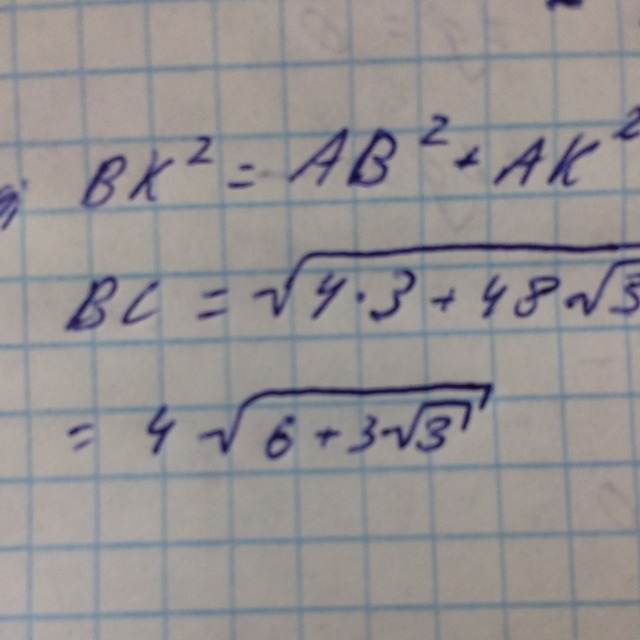 BK² = AB² + AK²
BC = √(4·3 + 48√3
= 4√(6 + 3√3)